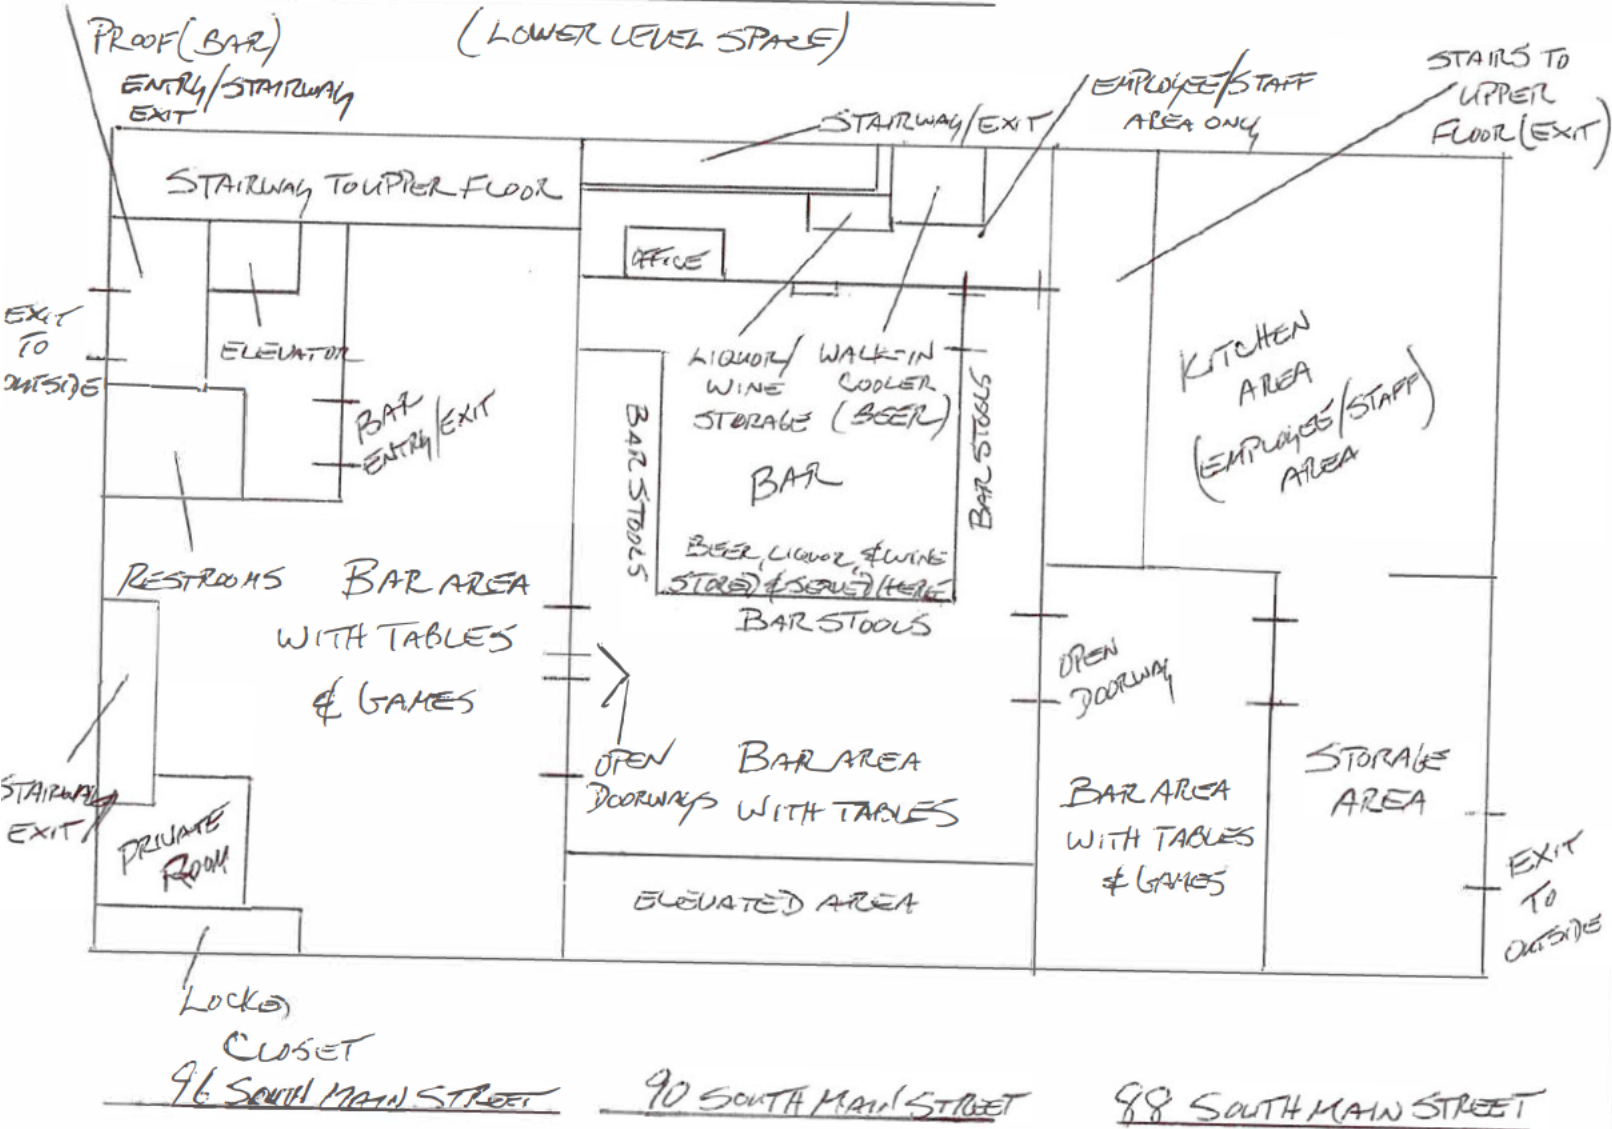 (LOWER LEVEL SPACE)
PROOF (BAR)
ENTRY/STAIRWAY
EXIT
STAIRWAY/EXIT
EMPLOYEE/STAFF
AREA ONLY
STAIRS TO
UPPER
FLOOR (EXIT)
STAIRWAY TO UPPER FLOOR
OFFICE
EXIT
TO
OUTSIDE
ELEVATOR
BAR
ENTRY/EXIT
LIQUOR/
WINE
STORAGE
WALK-IN
COOLER
(BEER)
BAR STOOLS
BAR STOOLS
BAR
BEER, LIQUOR, & WINE
STORED & SERVED HERE
BAR STOOLS
KITCHEN
AREA
(EMPLOYEE/STAFF)
AREA
RESTROOMS
BAR AREA
WITH TABLES
& GAMES
OPEN
DOORWAY
OPEN
DOORWAYS
BAR AREA
WITH TABLES
BAR AREA
WITH TABLES
& GAMES
STORAGE
AREA
STAIRWAY
EXIT
PRIVATE
ROOM
ELEVATED AREA
EXIT
TO
OUTSIDE
LOCKED
CLOSET
96 SOUTH MAIN STREET
90 SOUTH MAIN STREET
88 SOUTH MAIN STREET